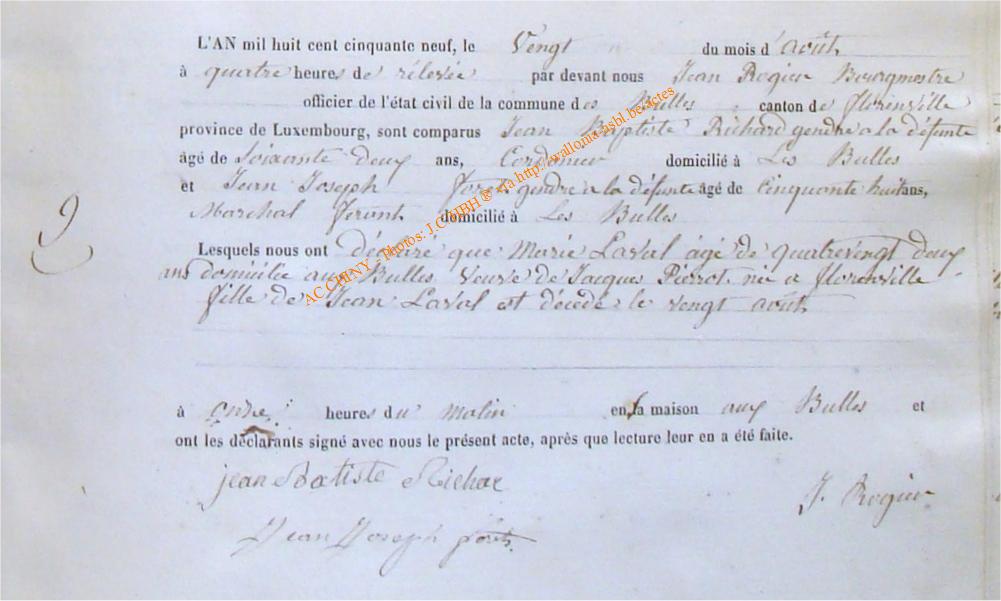 L'AN mil huit cent cinquante neuf, le Vengt du mois d'août
à quatre heures de rélevée par devant nous Jean Rogier Bourgmestre
officier de l'état civil de la commune des Bulles canton de florenville
province de Luxembourg, sont comparus Jean Baptiste Richard gendre a la défunte
âgé de Soixante deux ans, Cordonier domicilié à Les Bulles
et Jean Joseph gendre a la défunte âgé de Cinquante huit ans,
Marchal ferant domicilié à Les Bulles
9
Lesquels nous ont déclaré que Marie Laval agé de quatrevengt deux
ans domiciliée aux Bulles Veuve de Jacques Pierrot née a florenville
fille de Jean Laval est décédé le vengt août
à onze heures du matin en la maison aux Bulles et
ont les déclarants signé avec nous le présent acte, après que lecture leur en a été faite.
jean Batiste Richar
J. Rogier
Jean Joseph
AC CHINY - Photos: J.C. HBH ® via http://wallonia-asbl.be/actes